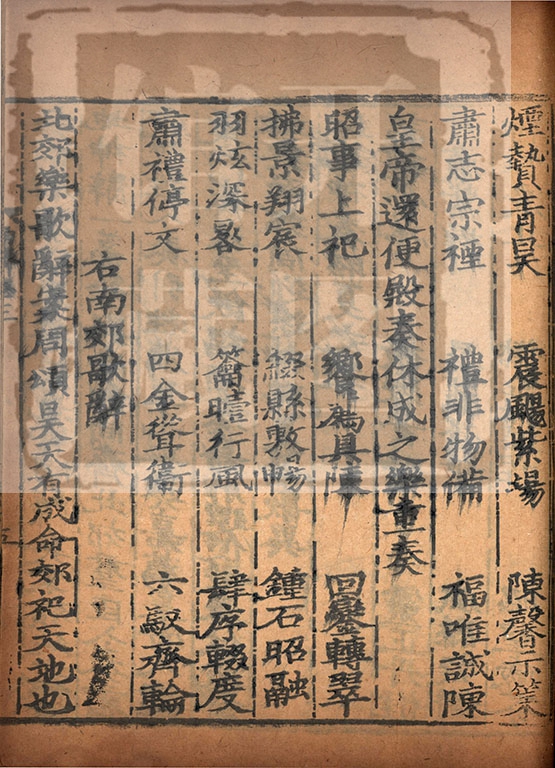 煙贄青昊　震颺紫場　陳馨示策
肅志宗禋　禮非物備　福唯誠陳
皇帝還便殿奏休成之樂重奏
昭事上祀　饗薦具陳　回鑾轉翠
拂景翔宸　綴縣敷暢　鍾石昭融
羽炫深晷　籥曀行風　肆序輟度
肅禮停文　四金聳衛　六馭齊輪
右南郊歌辭
北郊樂歌辭案周頌昊天有成命郊祀天地也